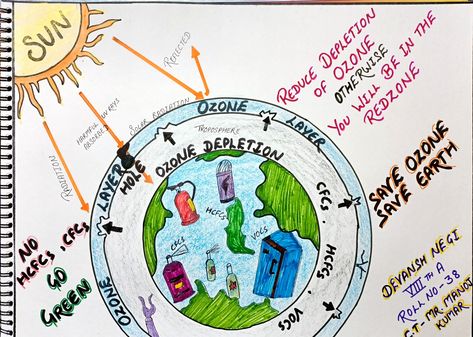 SUN
REFLECTED
RADIATION
HARMFUL UV RAYS
ABSORBED
SOLAR RADIATION
OZONE
LAYER
TROPOSPHERE
LAYER
HOLE
OZONE DEPLETION
OZONE
CFCs, HCFCs, VOCs
HCFCs
VOCs
CFCs
REDUCE DEPLETION
OF OZONE
OTHERWISE
YOU WILL BE IN THE
REDZONE
SAVE OZONE
SAVE EARTH
NO
HCFCs, CFCs
GO
GREEN
DEVANSH NEGI
VIIITH A
ROLL NO-38
C.T- MR. MANOJ
KUMAR